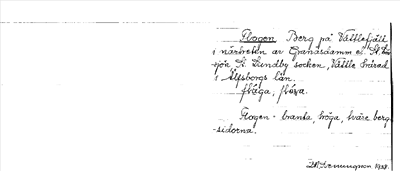 Flogen Berg på Vättlefjäll
i närheten av Granasdamm o. St.
sjör St. Lundby socken, Vättle härad
i Älfsborgs län.
flåga, flåva.
Flogen - branta, höga, tväre berg-
sidorna.
1938